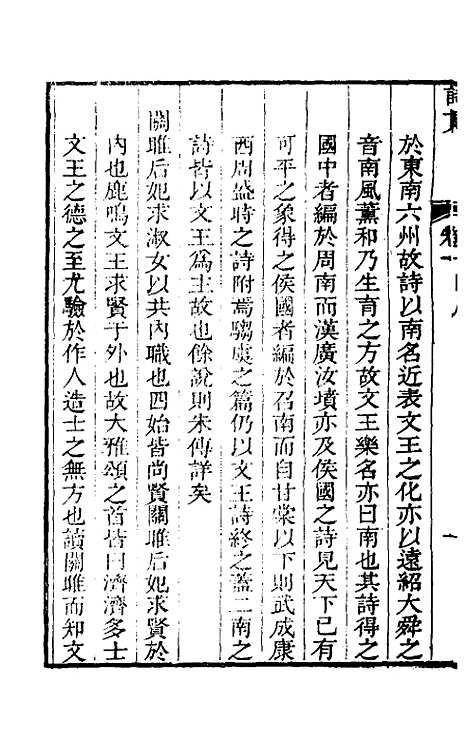 於東南六州故詩以南名近表文王之化亦以遠紹大舜之
音南風薰和乃生育之方故文王樂名亦曰南也其詩得之
國中者編於周南而漢廣汝墳亦及侯國之詩見天下已有
可平之象得之侯國者編於召南而自甘棠以下則武成康
西周盛時之詩附焉騶虞之篇仍以文王詩終之蓋二南之
詩皆以文王爲主故也餘說則朱傳詳矣
關雎后妃求淑女以共內職也四始皆尚賢關雎后妃求賢於
內也鹿鳴文王求賢于外也故大雅頌之首皆曰濟濟多士
文王之德之至尤驗於作人造士之無方也讀關雎而知文